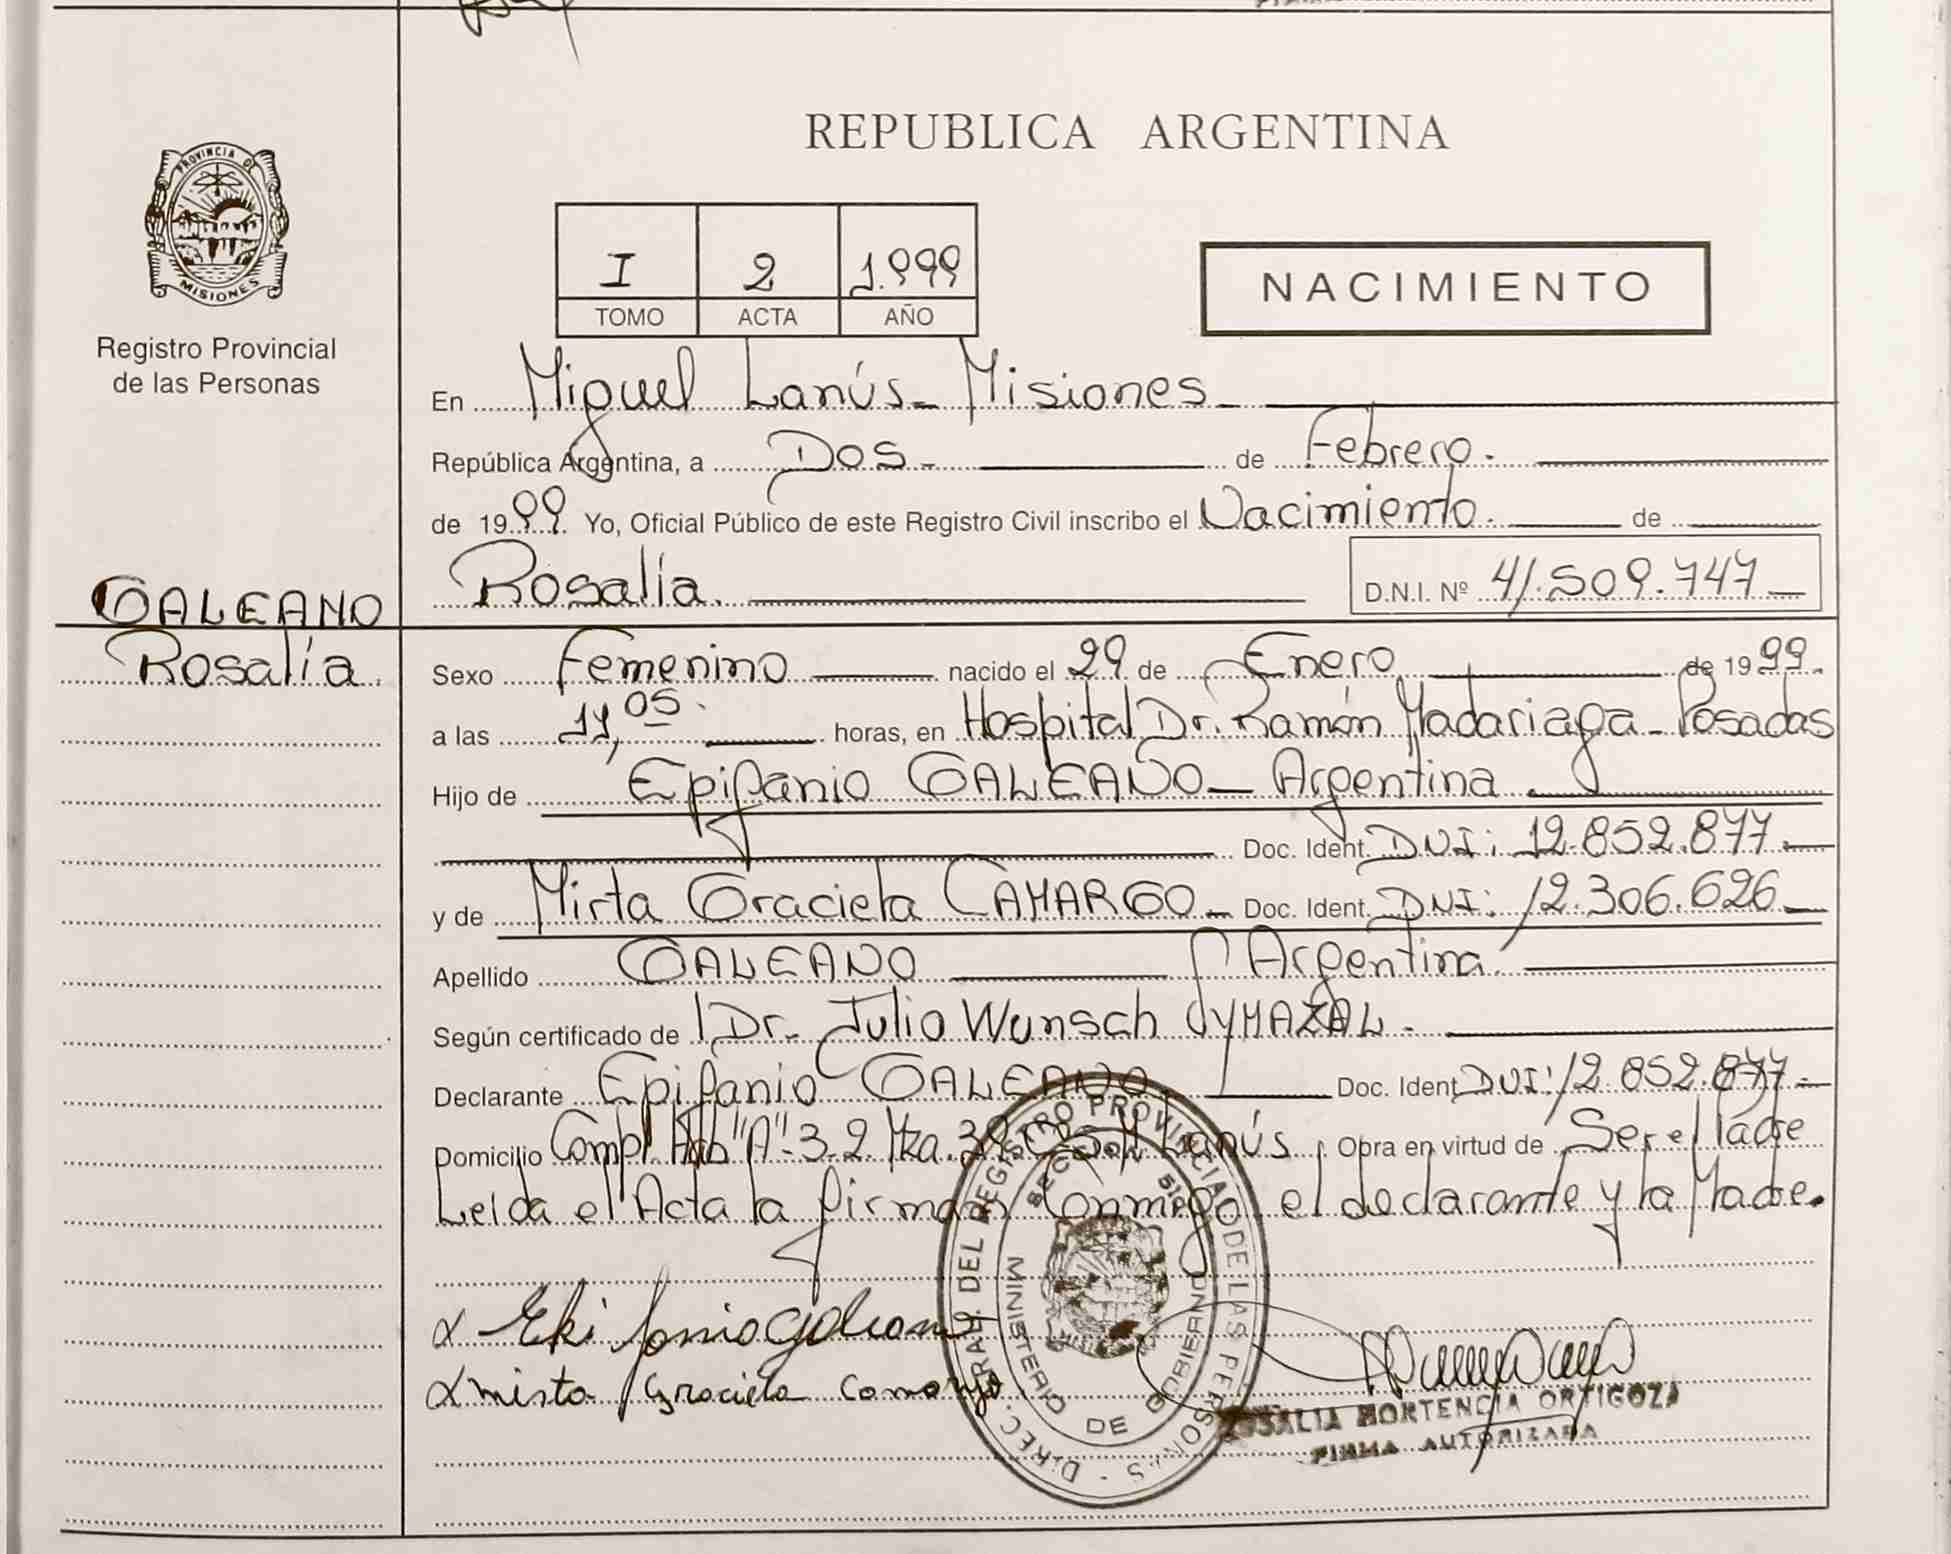 REPUBLICA ARGENTINA
PROVINCIA DE
MISIONES
Registro Provincial
de las Personas
I 2 1.999
TOMO ACTA AÑO
NACIMIENTO
En Miguel Lanús - Misiones -
República Argentina, a Dos - de Febrero.
de 1999. Yo, Oficial Público de este Registro Civil inscribo el Nacimiento. de
Rosalía. D.N.I. Nº 41.509.747
GALEANO
Rosalía.
Sexo Femenino nacido el 29 de Enero de 1999.
a las 11,05. horas, en Hospital Dr. Ramón Madariaga - Posadas
Hijo de Epifanio GALEANO - Argentina
Doc. Ident. DNI: 12.852.877
y de Mirta Graciela CAMARGO - Doc. Ident. DNI: 12.306.626
Apellido GALEANO Argentina.
Según certificado de Dr. Julio Wunsch SYMAZAL.
Declarante Epifanio GALEANO. Doc. Ident DNI: 12.852.877
Domicilio Compl. Hab "A" - 3.2 Mza. Lanús. Obra en virtud de Ser el Padre
Leida el Acta la firman Conmigo el declarante y la Madre.
mirta Graciela Camargo
DIREC. GRAL. DEL REGISTRO PROVINCIAL DE LAS PERSONAS
MINISTERIO DE GOBIERNO
ROSALIA HORTENCIA ORTIGOZA
FIRMA AUTORIZADA